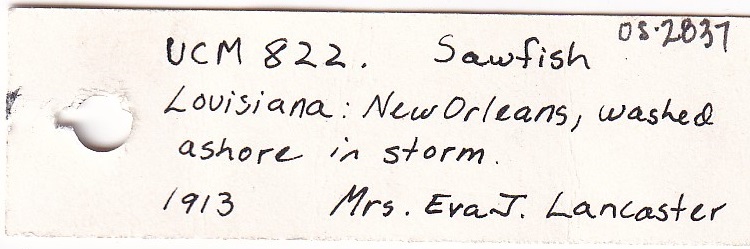 OS.2837
UCM 822. Sawfish
Louisiana: New Orleans, washed
ashore in storm.
1913 Mrs. Eva J. Lancaster